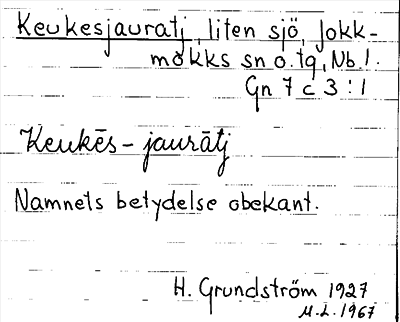 Keukesjauratj, liten sjö, Jokk-
mokks sn o. tg, Nb. l.
Gn 7 c 3 : 1
Keukēs - jaurātj
Namnets betydelse obekant.
H. Grundström 1927
M.L. 1967